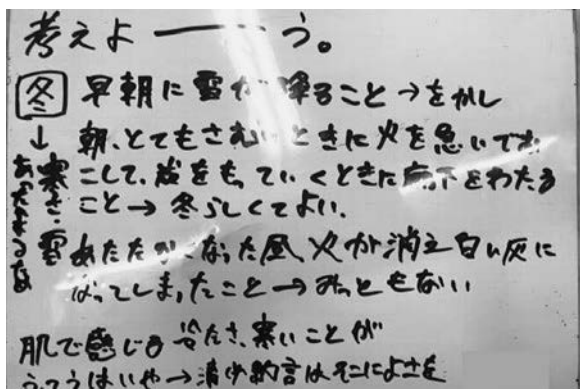 考えよーう。
冬 早朝に雪が降ること→をかし
↓ 朝、とてもさむいときに火を急いでお
こして、炭をもっていくときに廊下をわたる
こと→冬らしくてよい。
寒さ・雪
あたたかくなった昼、火が消え白い灰に
なってしまったこと→みっともない
肌で感じる冷たさ、寒いことが
清少納言はそこによさを